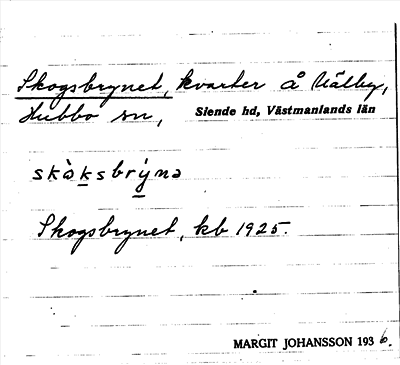 Skogsbrynet, kvarter å Vålby,
Hubbo sn, Siende hd, Västmanlands län
skòksbrýnə
Skogsbrynet, kb 1925.
MARGIT JOHANSSON 1936.